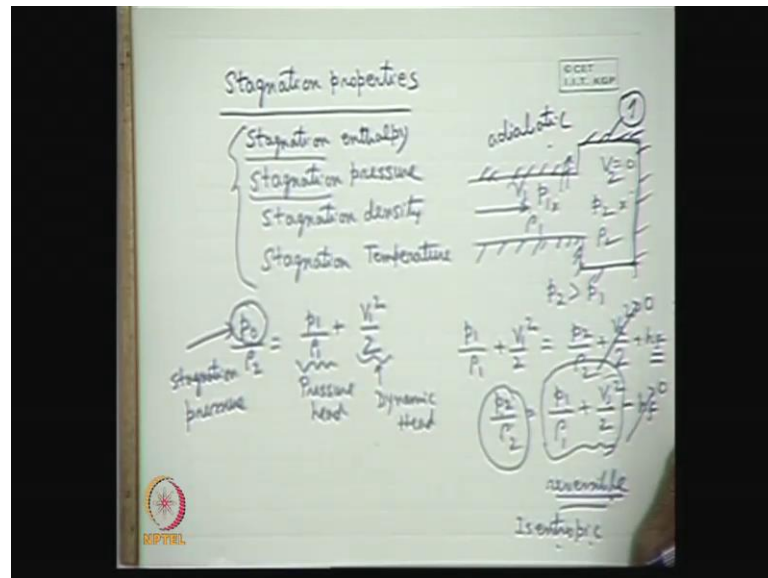 Stagnation properties
© CET
I.I.T. KGP
Stagnation enthalpy
Stagnation pressure
Stagnation density
Stagnation Temperature
adiabatic
1
V₁ p₁
ρ₁
V₂=0
p₂
ρ₂
p₂ > p₁
p₀/ρ₂ = p₁/ρ₁ + V₁²/2
stagnation pressure
Pressure head
Dynamic Head
p₁/ρ₁ + V₁²/2 = p₂/ρ₂ + V₂²/2 + hf
p₂/ρ₂ = p₁/ρ₁ + V₁²/2 - hf
reversible
Isentropic
NPTEL